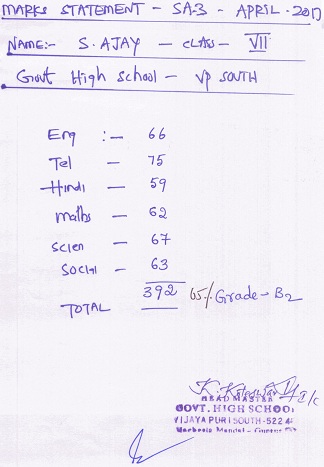 MARKS STATEMENT - SA-3 - APRIL-2017
NAME:- S. AJAY - CLASS - VII
Govt High school - VP SOUTH
Eng :- 66
Tel - 75
Hindi - 59
maths - 62
scien - 67
social - 63
TOTAL 392 65% Grade - B2
HEAD MASTER
GOVT. HIGH SCHOOL
VIJAYA PURI SOUTH-522 4
Mandal -